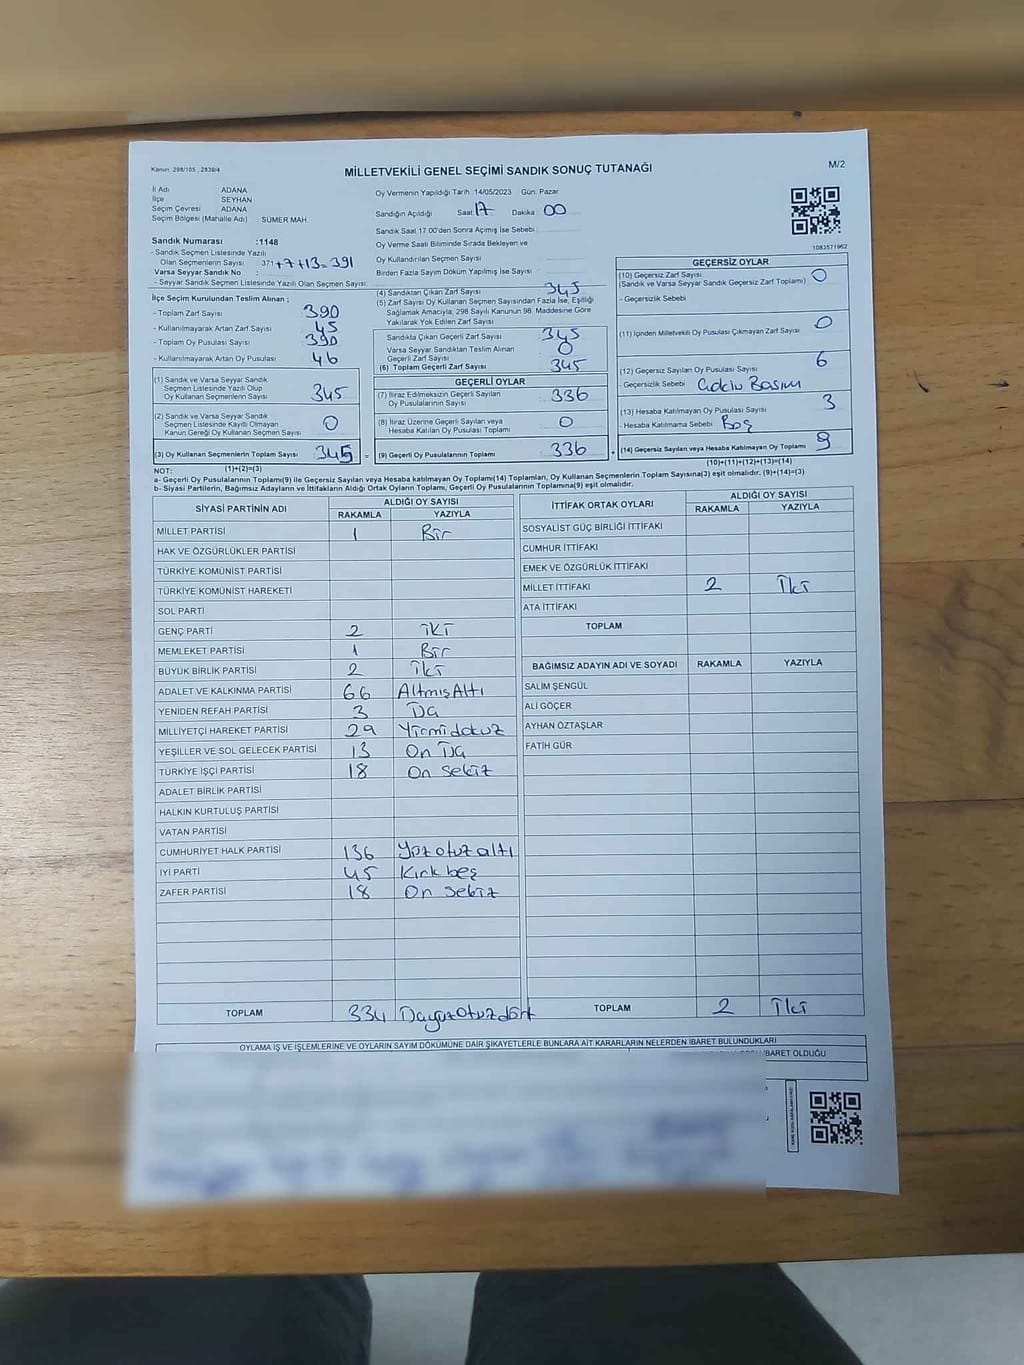 Kanun: 298/105 , 2839/4
MİLLETVEKİLİ GENEL SEÇİMİ SANDIK SONUÇ TUTANAĞI
M/2
İl Adı ADANA
İlçe SEYHAN
Seçim Çevresi ADANA
Seçim Bölgesi (Mahalle Adı) SÜMER MAH.
Sandık Numarası :1148
- Sandık Seçmen Listesinde Yazılı
Olan Seçmenlerin Sayısı 371+7+13=391
Varsa Seyyar Sandık No :
- Seyyar Sandık Seçmen Listesinde Yazılı Olan Seçmen Sayısı
Oy Vermenin Yapıldığı Tarih :14/05/2023 Gün: Pazar
Sandığın Açıldığı Saat 17 Dakika 00
Sandık Saat 17.00'den Sonra Açılmış İse Sebebi
Oy Verme Saati Bitiminde Sırada Bekleyen ve
Oy Kullandırılan Seçmen Sayısı
Birden Fazla Sayım Döküm Yapılmış İse Sayısı
1083571962
İlçe Seçim Kurulundan Teslim Alınan ;
- Toplam Zarf Sayısı 390
- Kullanılmayarak Artan Zarf Sayısı 45
- Toplam Oy Pusulası Sayısı 390
- Kullanılmayarak Artan Oy Pusulası 46
(1) Sandık ve Varsa Seyyar Sandık
Seçmen Listesinde Yazılı Olup
Oy Kullanan Seçmenlerin Sayısı 345
(2) Sandık ve Varsa Seyyar Sandık
Seçmen Listesinde Kayıtlı Olmayan
Kanun Gereği Oy Kullanan Seçmen Sayısı 0
(3) Oy Kullanan Seçmenlerin Toplam Sayısı 345 =
(1)+(2)=(3)
(4) Sandıktan Çıkan Zarf Sayısı 345
(5) Zarf Sayısı Oy Kullanan Seçmen Sayısından Fazla İse, Eşitliği
Sağlamak Amacıyla; 298 Sayılı Kanunun 98. Maddesine Göre
Yakılarak Yok Edilen Zarf Sayısı
Sandıkta Çıkan Geçerli Zarf Sayısı 345
Varsa Seyyar Sandıktan Teslim Alınan
Geçerli Zarf Sayısı 0
(6) Toplam Geçerli Zarf Sayısı 345
GEÇERLİ OYLAR
(7) İtiraz Edilmeksizin Geçerli Sayılan
Oy Pusulalarının Sayısı 336
(8) İtiraz Üzerine Geçerli Sayılan veya
Hesaba Katılan Oy Pusulası Toplamı 0
(9) Geçerli Oy Pusulalarının Toplamı 336 +
GEÇERSİZ OYLAR
(10) Geçersiz Zarf Sayısı
(Sandık ve Varsa Seyyar Sandık Geçersiz Zarf Toplamı) 0
- Geçersizlik Sebebi
(11) İçinden Milletvekili Oy Pusulası Çıkmayan Zarf Sayısı 0
(12) Geçersiz Sayılan Oy Pusulası Sayısı 6
Geçersizlik Sebebi Basım
(13) Hesaba Katılmayan Oy Pusulası Sayısı 3
- Hesaba Katılmama Sebebi Boş
(14) Geçersiz Sayılan veya Hesaba Katılmayan Oy Toplamı 9
(10)+(11)+(12)+(13)=(14)
NOT:
a- Geçerli Oy Pusulalarının Toplamı(9) ile Geçersiz Sayılan veya Hesaba katılmayan Oy Toplamı(14) Toplamları, Oy Kullanan Seçmenlerin Toplam Sayısına(3) eşit olmalıdır. (9)+(14)=(3)
b- Siyasi Partilerin, Bağımsız Adayların ve İttifakların Aldığı Ortak Oyların Toplamı, Geçerli Oy Pusulalarının Toplamına(9) eşit olmalıdır.
SİYASİ PARTİNİN ADI ALDIĞI OY SAYISI
RAKAMLA YAZIYLA
MİLLET PARTİSİ 1 Bir
HAK VE ÖZGÜRLÜKLER PARTİSİ
TÜRKİYE KOMÜNİST PARTİSİ
TÜRKİYE KOMÜNİST HAREKETİ
SOL PARTİ
GENÇ PARTİ 2 İki
MEMLEKET PARTİSİ 1 Bir
BÜYÜK BİRLİK PARTİSİ 2 İki
ADALET VE KALKINMA PARTİSİ 66 AltmışAltı
YENİDEN REFAH PARTİSİ 3 Üç
MİLLİYETÇİ HAREKET PARTİSİ 29 Yirmidokuz
YEŞİLLER VE SOL GELECEK PARTİSİ 13 On Üç
TÜRKİYE İŞÇİ PARTİSİ 18 On Sekiz
ADALET BİRLİK PARTİSİ
HALKIN KURTULUŞ PARTİSİ
VATAN PARTİSİ
CUMHURİYET HALK PARTİSİ 136 Yüzotuzaltı
İYİ PARTİ 45 Kırkbeş
ZAFER PARTİSİ 18 On Sekiz
TOPLAM 334 Üçyüzotuzdört
İTTİFAK ORTAK OYLARI ALDIĞI OY SAYISI
RAKAMLA YAZIYLA
SOSYALİST GÜÇ BİRLİĞİ İTTİFAKI
CUMHUR İTTİFAKI
EMEK VE ÖZGÜRLÜK İTTİFAKI
MİLLET İTTİFAKI 2 İki
ATA İTTİFAKI
TOPLAM
BAĞIMSIZ ADAYIN ADI VE SOYADI RAKAMLA YAZIYLA
SALİM ŞENGÜL
ALİ GÖÇER
AYHAN ÖZTAŞLAR
FATİH GÜR
TOPLAM 2 İki
OYLAMA İŞ VE İŞLEMLERİNE VE OYLARIN SAYIM DÖKÜMÜNE DAİR ŞİKAYETLERLE BUNLARA AİT KARARLARIN NELERDEN İBARET BULUNDUKLARI
İBARET OLDUĞU